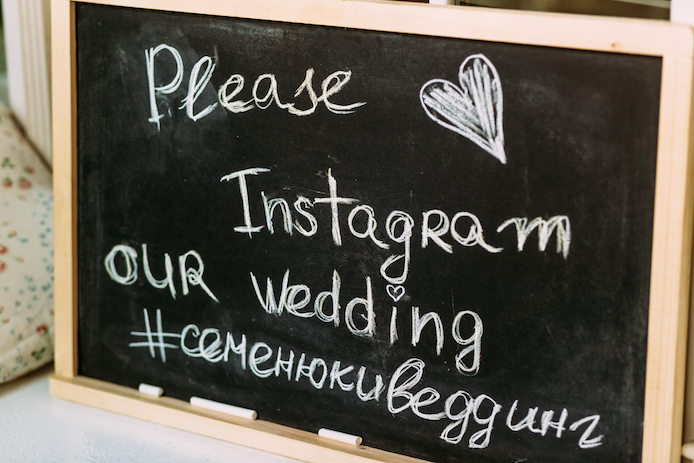 Please
Instagram
our wedding
#семенюкиведдинг